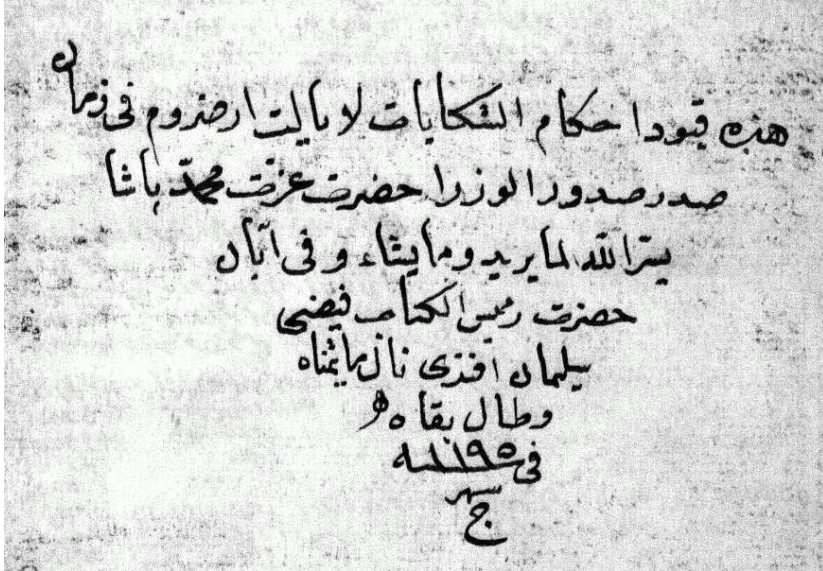 هذه قيود احكام الشكايات لايالت ارضروم فى زمان
صدر صدور الوزرا حضرت عزت محمد پاشا
يسر الله لما يريد وما يشاء وفى آبان
حضرت رئيس الكتاب فيضى
سليمان افندى نال ما يتمناه
وطال بقاه
فى سنه ١١٩٥
ج